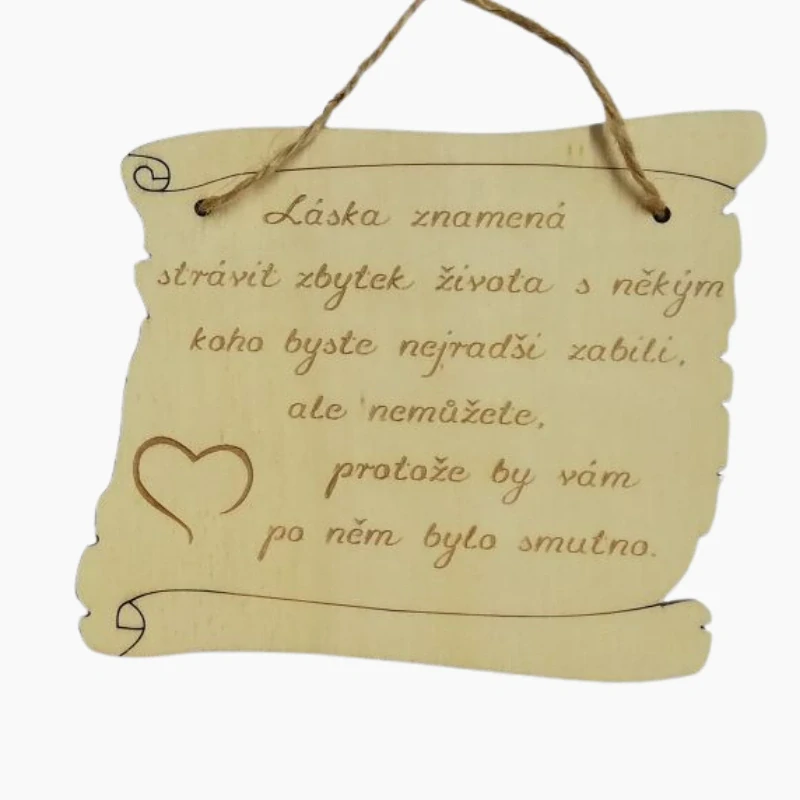 Láska znamená
strávit zbytek života s někým
koho byste nejradši zabili,
ale nemůžete,
protože by vám
po něm bylo smutno.